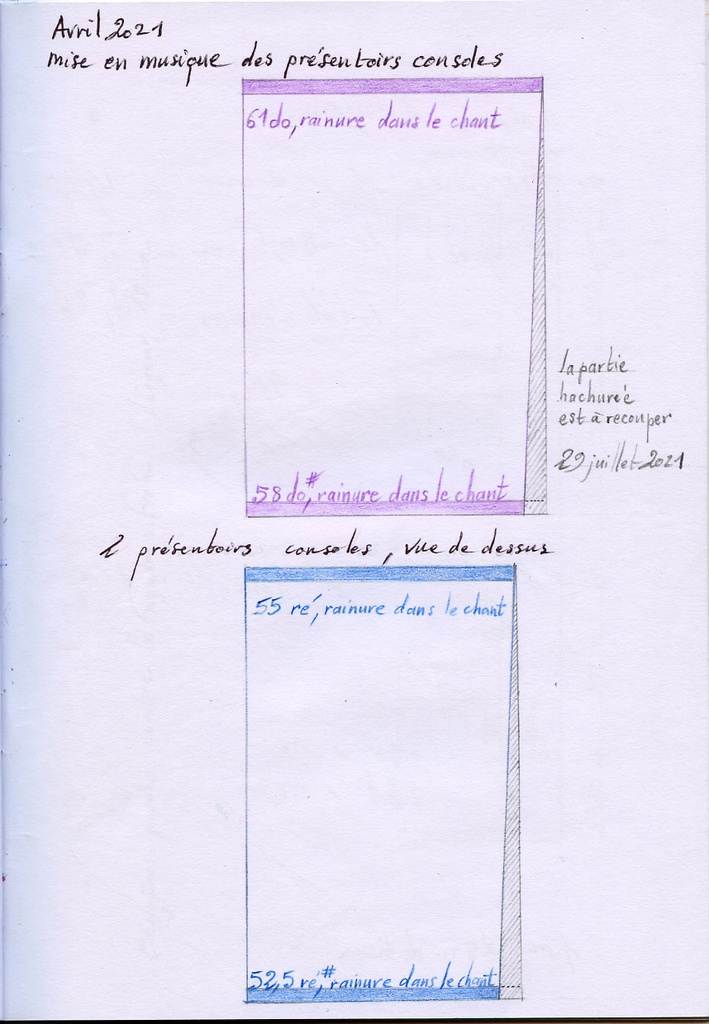 Avril 2021
mise en musique des présentoirs consoles
61 do, rainure dans le chant
la partie
hachurée
est à recouper
29 juillet 2021
58 do#, rainure dans le chant
2 présentoirs consoles, vue de dessus
55 ré, rainure dans le chant
52,5 ré,# rainure dans le chant